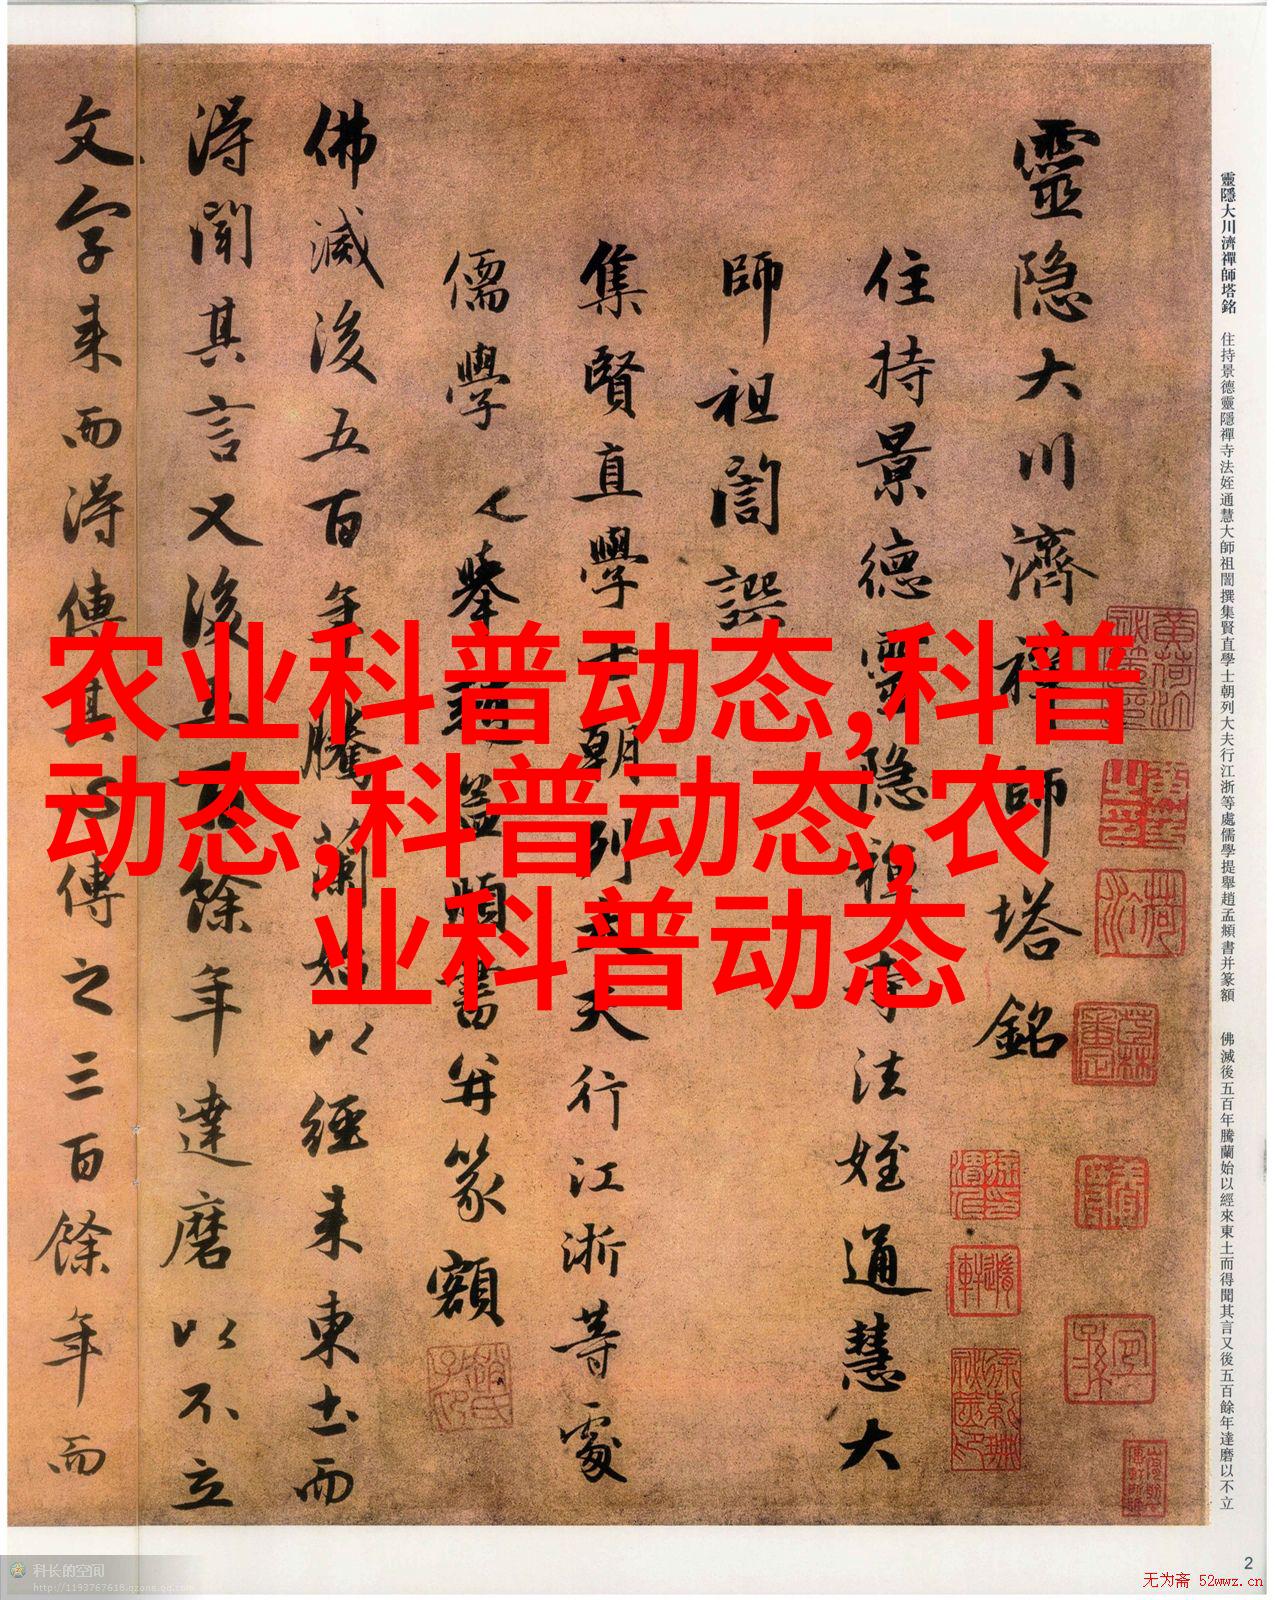 靈隱大川濟禪師塔銘 住持景德靈隱禪寺法姪通慧大師祖誾撰集賢直學士朝列大夫行江浙等處儒學提舉趙孟頫書并篆額 佛滅後五百年騰蘭始以經來東土而得聞其言又後五百餘年達磨以不立
靈隐大川濟禪師塔銘
住持景德靈隐禪寺法姪通慧大
師祖誾譔
集賢直學士朝列大夫行江浙等處
儒學提舉趙孟頫書并篆額
佛滅後五百年騰蘭始以經来東土而
得聞其言又後五百餘年達磨以不立
文字来而得傳其心傳之三百餘年而
农业科普动态,科普
动态,科普动态,农
业科普动态
2
科长的空间
http://1193767618.qzone.qq.com
无为斋 52wwz.cn